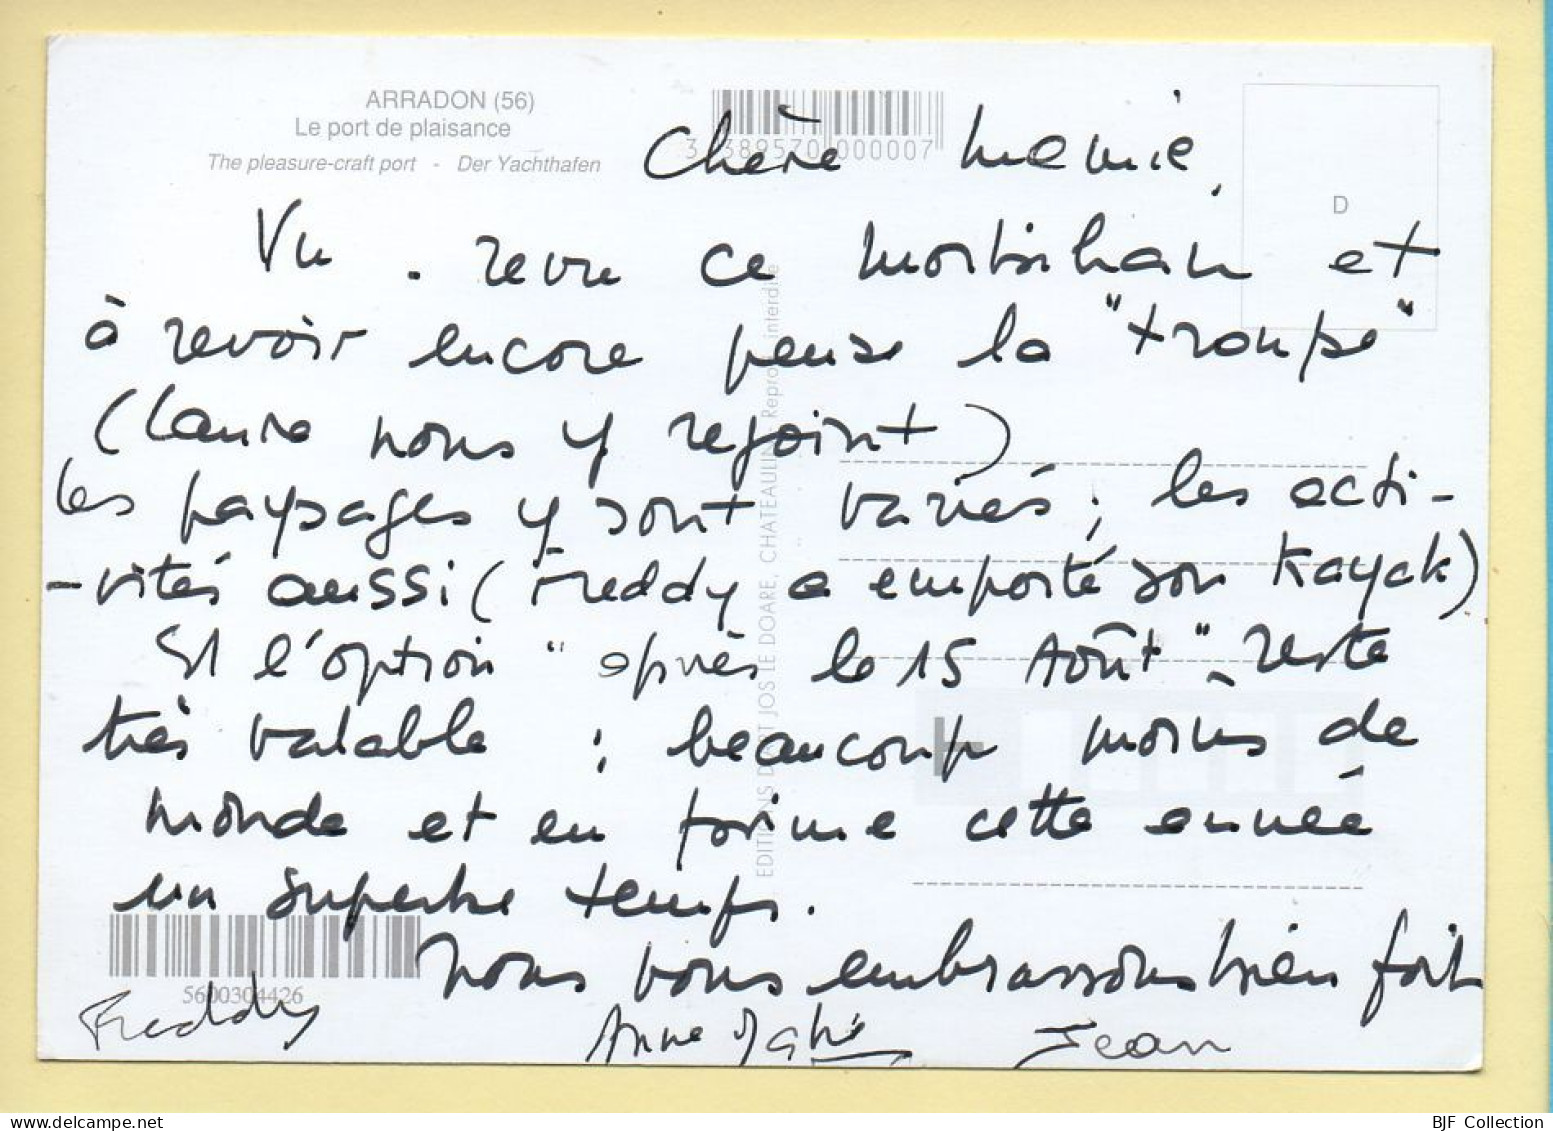 ARRADON (56)
Le port de plaisance
The pleasure-craft port - Der Yachthafen
3 389570 000007
D
Chère Mamie,
Vu - revu ce Morbihan et
à revoir encore pense la "troupe"
(Laure nous y rejoint)
Les paysages y sont variés ; les acti-
-vités aussi (Freddy a emporté son Kayak)
Et l'option "après le 15 Août" reste
très valable : beaucoup moins de
monde et en prime cette année
un superbe temps.
Nous vous embrassons bien fort
Freddy
Anne Jean
EDITIONS D'ART JOS LE DOARE, CHATEAULIN Reprod. interdite
5600304426
BJF Collection